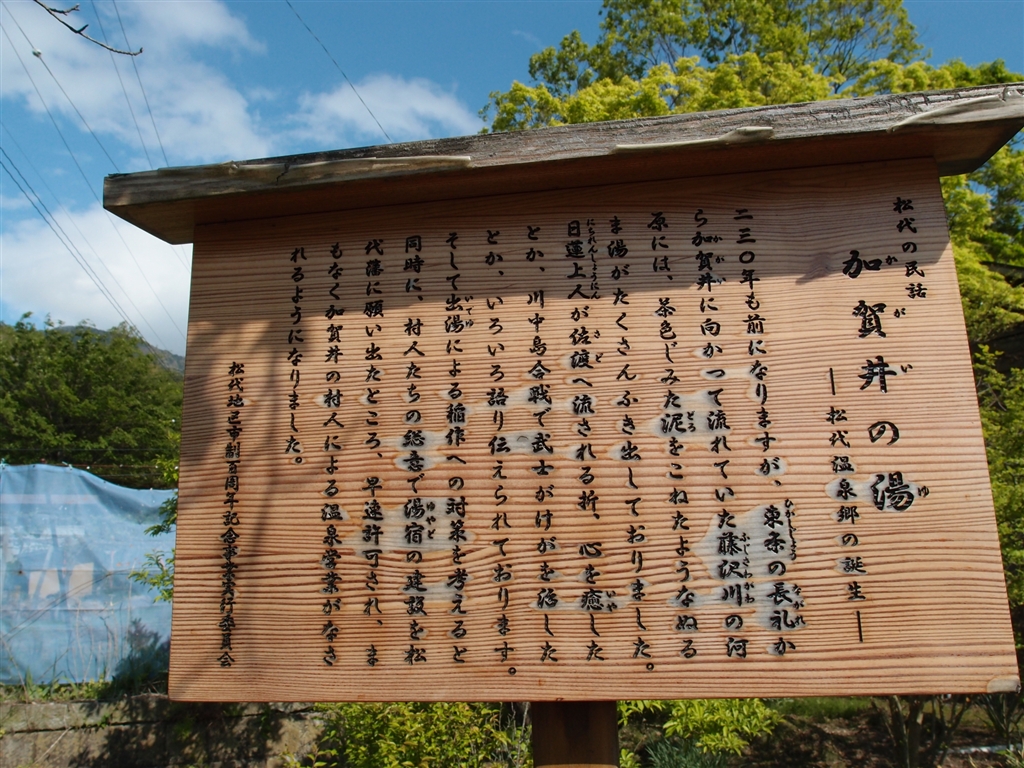 松代の民話
加賀井の湯
―松代温泉郷の誕生―
二三〇年も前になりますが、東条の長礼か
ら加賀井に向かって流れていた藤沢川の河
原には、茶色じみた泥をこねたようなぬる
ま湯がたくさんふき出しておりました。
日蓮上人が佐渡へ流される折、心を癒した
とか、川中島合戦で武士がけがを治した
とか、いろいろ語り伝えられております。
そして出湯による稲作への対策を考えると
同時に、村人たちの総意で湯宿の建設を松
代藩に願い出たところ、早速許可され、ま
もなく加賀井の村人による温泉営業がなさ
れるようになりました。
松代地区市制百周年記念事業実行委員会